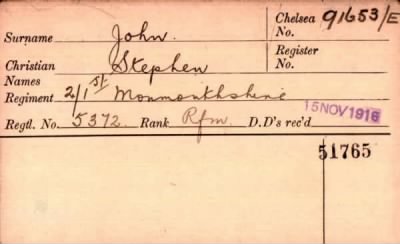 Surname John. Chelsea No. 91653/E
Christian Names Stephen Register No.
Regiment 2/1st Monmouthshire
Regtl. No. 5372 Rank Rfm. D.D's rec'd 15 NOV 1916
51765